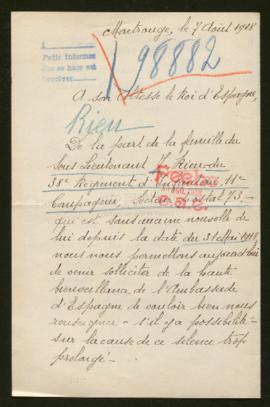 Montrouge, le 7 Août 1918
198882
A son Altesse le Roi d'Espagne,
Rien
De la part de la famille du
Sous Lieutenant
38e Régiment d'Infanterie 11e
Compagnie, Secteur Postal 73 –
qui est sans aucune nouvelle de
lui depuis la date du 31 Mai 1918
nous nous permettons aujourd'hui
de venir solliciter de la haute
bienveillance de l'Ambassade
d'Espagne de vouloir bien nous
renseigner – s'il y a possibilité –
sur la cause de ce silence trop
prolongé –